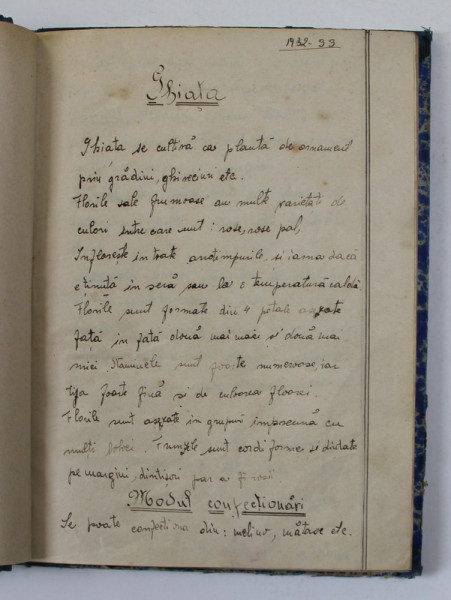 1932-33
Ghiața
Ghiata se cultivă ca plantă de ornament
prin grădini, ghiveciuri etc.
Florile sale frumoase au multe varietate de
culori intre care sunt: rose, rose pal,
Infloreste in toate anotimpurile, si iarna dacă
e ținută in seră sau la o temperatură caldă.
Florile sunt formate din 4 petale asezate
față in față două mai mari si două mai
mici. Staminele sunt foarte numeroase, iar
tija foarte fină si de culoarea floarei.
Florile sunt asezate in grupuri impreună cu
mulți boboci. Frunzele sunt cordiforme si dințate
pe margini, dintisori par a fi
Modul confecționări
Se poate confectiona din: melino, mătase etc.